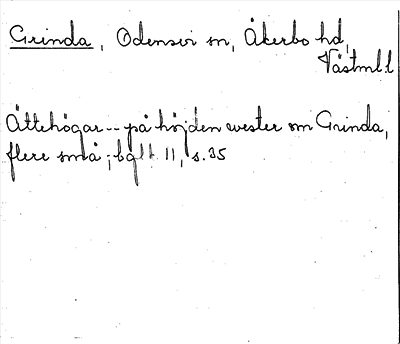 Grinda, Odensvi sn, Åkerbo hd,
Västml.l
Ättehögar -- på höjden wester om Grinda,
flere små; bglt 11, s. 35